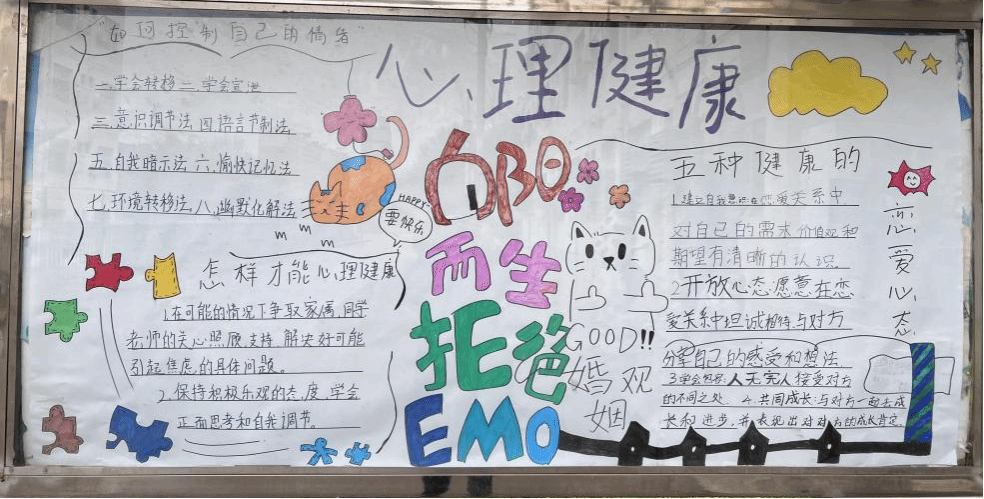 "如何控制自己的情绪"
一.学会转移 二.学会宣泄
三.意识调节法 四.语言节制法
五.自我暗示法 六.愉快记忆法
七.环境转移法 八.幽默化解法
怎样才能心理健康
1.在可能的情况下争取家属,同学
老师的关心照顾,支持,解决好可能
引起焦虑的具体问题。
2.保持积极乐观的态度,学会
正面思考和自我调节。
心理健康
向阳
而生
拒绝
EMO
HAPPY
要快乐
m
m
m
GOOD!!
婚姻观
五种健康的
恋爱心态
1.建立自我意识:在恋爱关系中
对自己的需求 价值观和
期望有清晰的认识.
2.开放心态:愿意在恋
爱关系中坦诚相待,与对方
分享自己的感受和想法
3.学会包容:人无完人接受对方
的不同之处. 4.共同成长:与对方一起去成
长和进步,并表现出对对方的成长肯定.